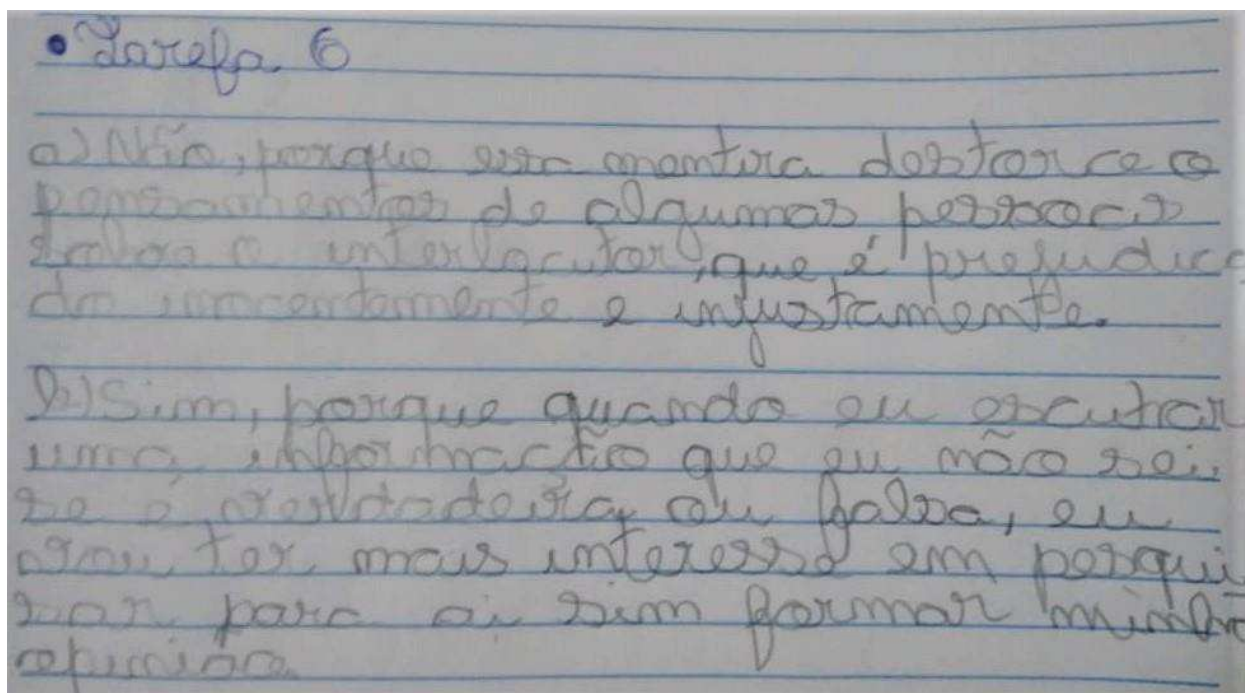 • Tarefa 6
a) Não, porque essa mentira destorce o
pensamentos de algumas pessoas
sobre o interlocutor, que é prejudica
do inocentemente e injustamente.
b) Sim, porque quando eu escutar
uma informação que eu não sei
se é verdadeira ou falsa, eu
vou ter mais interesse em pesqui
sar para ai sim formar minha
opinião